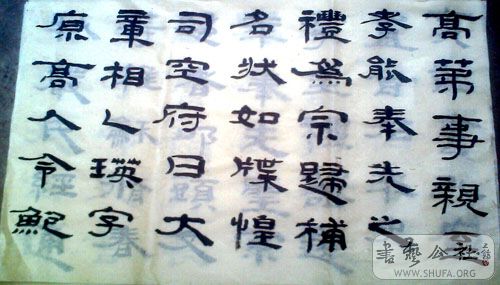 高第事親
孝能奉先之
禮為宗歸補
名狀如牒惶
司空府曰大
章相乙瑛字
原高人令鮑
書藝公社
WWW.SHUFA.ORG